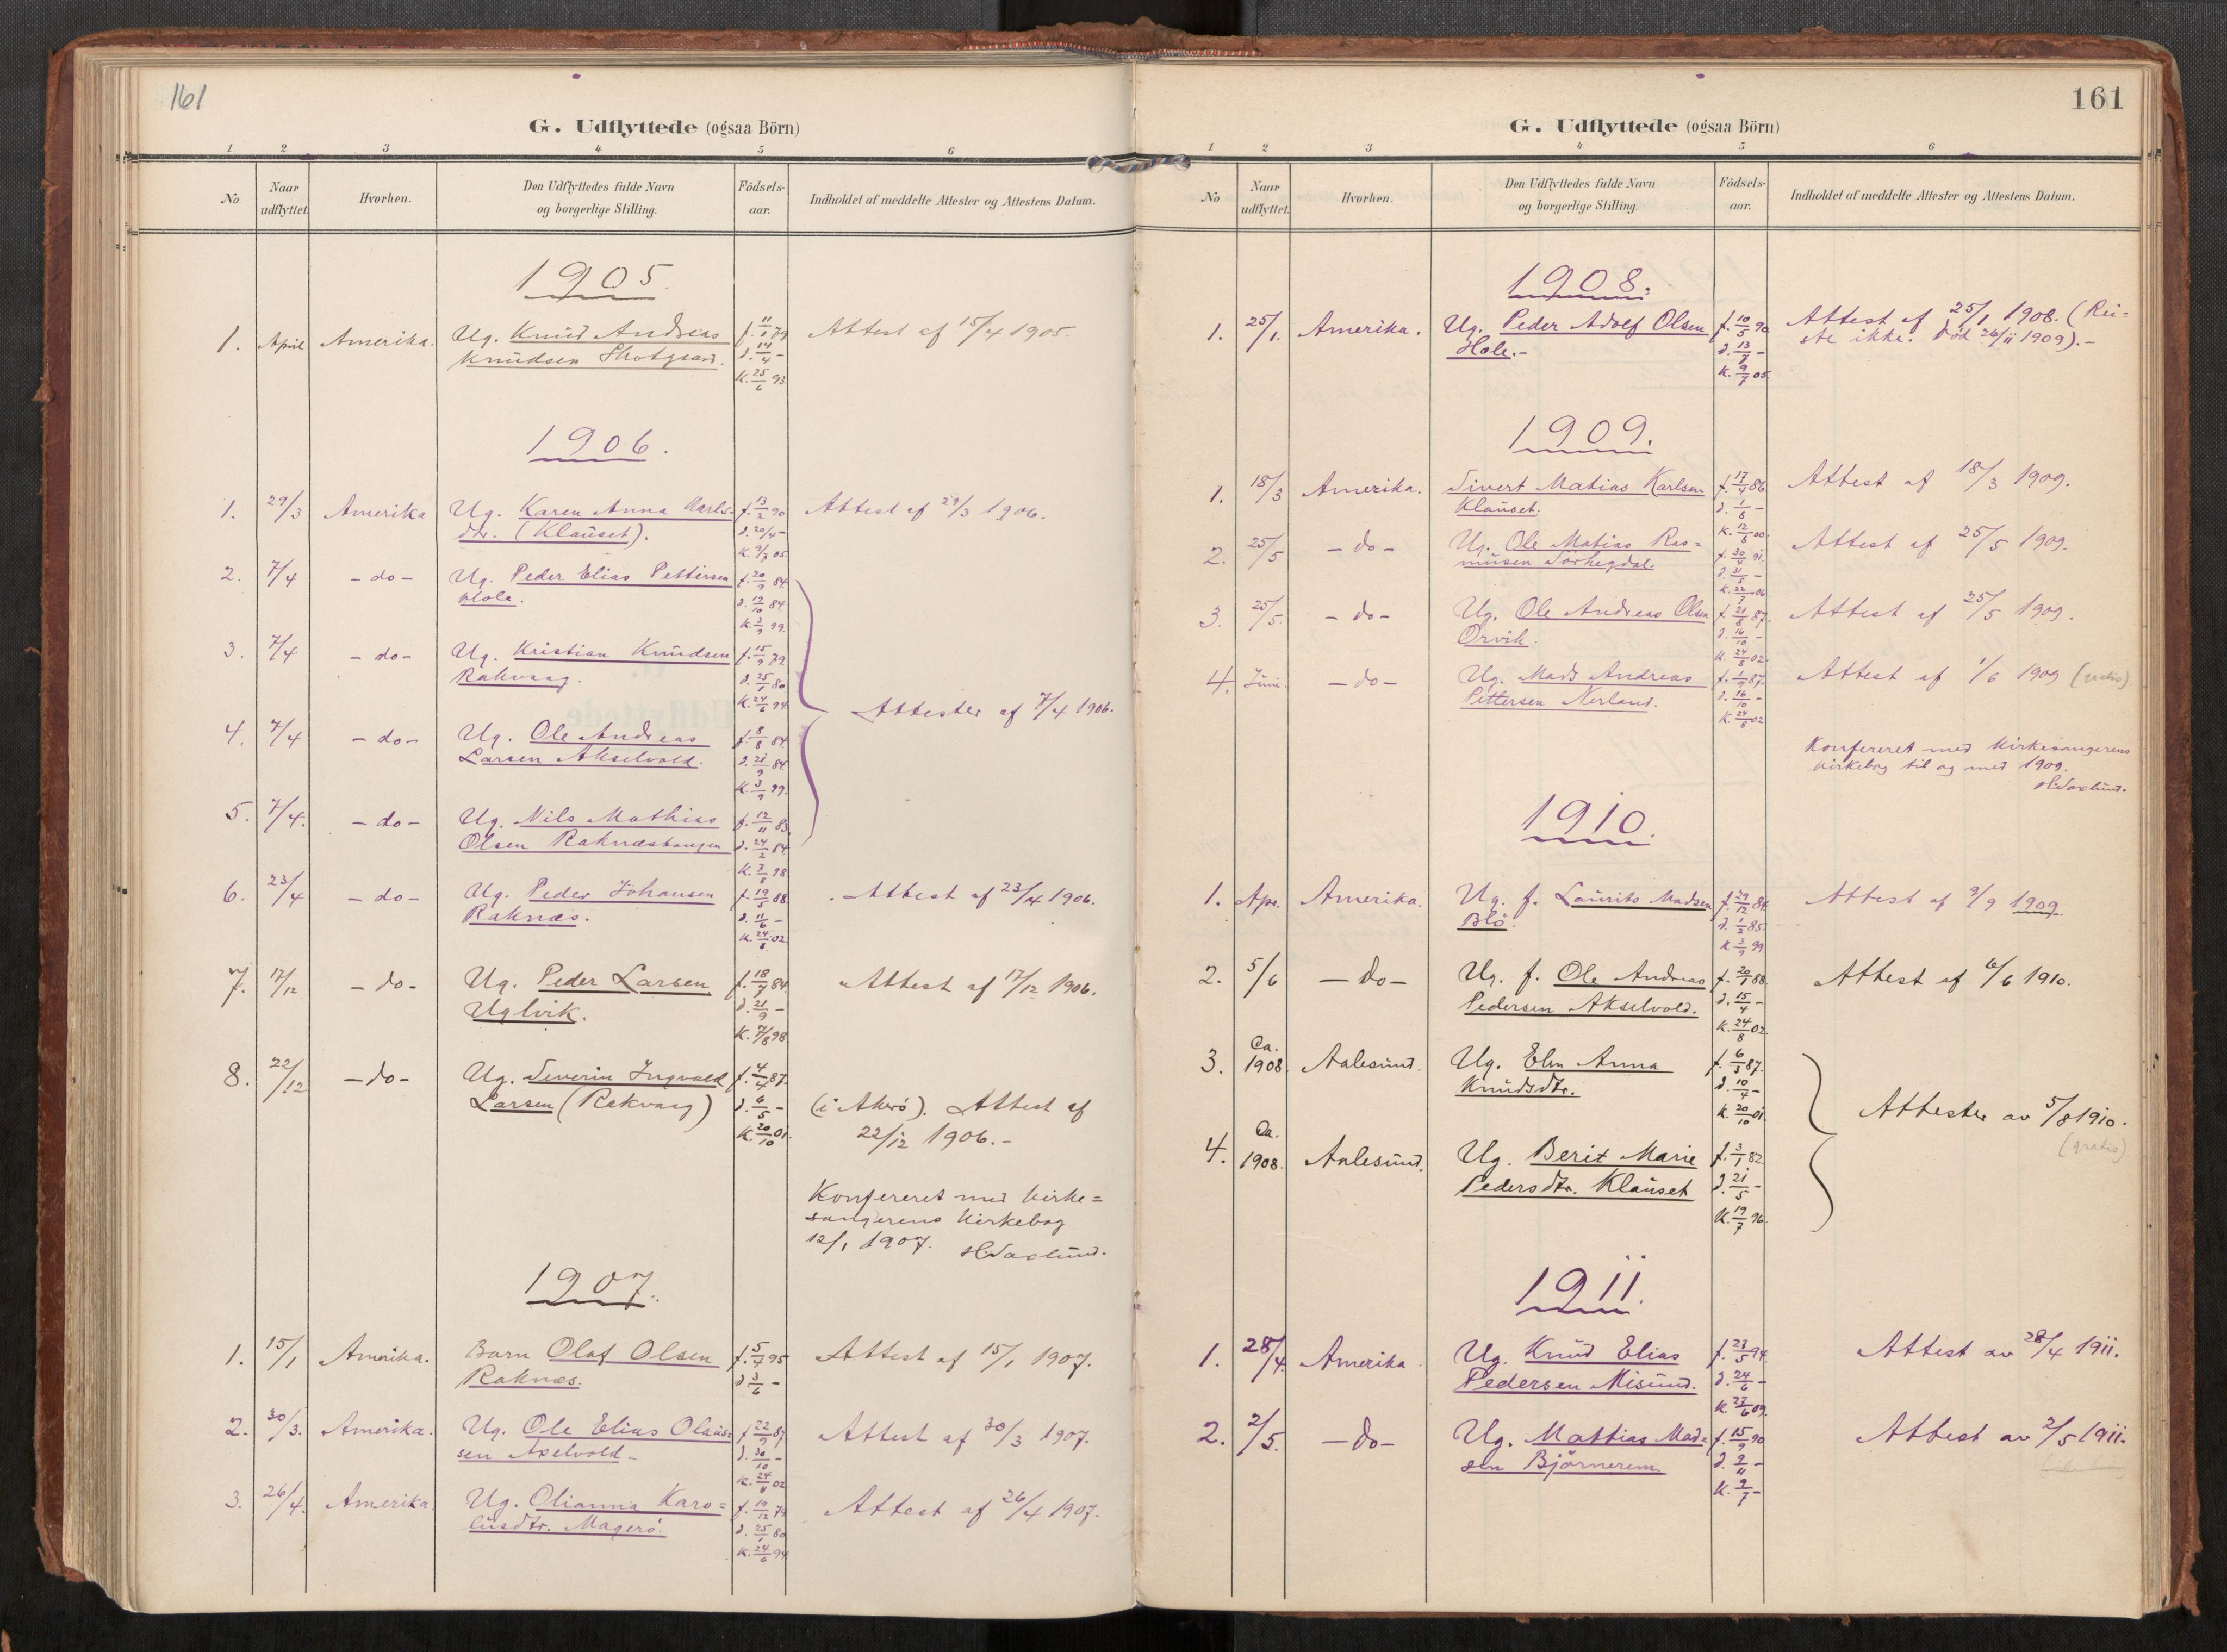 161
G. Udflyttede (ogsaa Börn)
1 2 3 4 5 6
No. Naar udflyttet. Hvorhen. Den Udflyttedes fulde Navn og borgerlige Stilling. Födsels-aar. Indholdet af meddelte Attester og Attestens Datum.
1905.
1. April Amerika. Ug. Knud Andreas f. 11/1 79 Attest af 15/4 1905.
Knudsen Skotgaard. d. 14/4 -
K. 25/6 93.
1906.
1. 29/3 Amerika Ug. Karen Anna Karls- f. 13/2 90 Attest af 29/3 1906.
dtr. (Klauset). d. 20/4 -
K. 9/7 05
2. 7/4 - do - Ug. Peder Elias Pettersen f. 20/9 84.
Hole. d. 12/10 84.
K. 3/9 99.
3. 7/4 - do - Ug. Kristian Knudsen f. 15/9 79
Rakvaag. d. 25/1 80
K. 24/6 94 Attester af 7/4 1906.
4. 7/4 - do - Ug. Ole Andreas f. 8/8 84.
Larsen Akselvold. d. 21/9 84.
K. 3/9 99.
5. 7/4. - do - Ug. Nils Mathias f. 12/11 83
Olsen Raknæshaugen d. 24/2 84.
K. 7/8 98
6. 23/4 - do - Ug. Peder Johansen f. 19/5 88. Attest af 23/4 1906.
Raknæs. d. 11/6 -
K. 24/8 02.
7. 17/12 - do - Ug. Peder Larsen f. 18/7 84. Attest af 17/12 1906.
Uglvik. d. 21/9 -
K. 7/8 98.
8. 22/12 - do - Ug. Severin Ingvald f. 4/4 87.
Larsen (Rakvaag) d. 6/5 - (i Akerö). Attest af
K. 20/10 01. 22/12 1906. -
Konfereret med Kirke=
sangerens Kirkebog
12/1 1907. H. Saxlund.
1907.
1. 15/1 Amerika. Barn Olaf Olsen f. 5/4 95 Attest af 15/1 1907.
Raknæs. d. 3/6 -
2. 30/3. Amerika. Ug. Ole Elias Olaus= f. 22/9 87 Attest af 30/3 1907.
sen Axelvold - d. 30/10 -
K. 24/8 02
3. 26/4. Amerika. Ug. Olianna Karo= f. 19/12 79 Attest af 26/4 1907.
lusdtr. Magerö. d. 25/1 80
K. 24/6 94
161
G. Udflyttede (ogsaa Börn)
1 2 3 4 5 6
No Naar udflyttet. Hvorhen. Den Udflyttedes fulde Navn og borgerlige Stilling. Födsels-aar. Indholdet af meddelte Attester og Attestens Datum.
1908.
1. 25/1. Amerika. Ug. Peder Adolf Olsen f. 10/5 90 Attest af 25/1 1908. (Rei-
Hole. - d. 13/7 - ste ikke. Död 26/11 1909). -
K. 9/7 05.
1909.
1. 18/3 Amerika. Sivert Matias Karlsen f. 17/4 86 Attest af 18/3 1909.
Klauset. d. 1/6 -
K. 12/8 00.
2. 25/5 - do - Ug. Ole Matias Ras= f. 30/4 91. Attest af 25/5 1909.
musen Sörhegdal. d. 31/5 -
K. 22/7 06
3. 25/5. - do - Ug. Ole Andreas Olsen f. 21/8 87. Attest af 25/5 1909.
Orvik. d. 16/10 -
K. 24/8 02.
4. Juni - do - Ug. Mads Andreas f. 1/9 87. Attest af 1/6 1909 (gratis).
Pettersen Nerland. d. 16/10 -
K. 24/8 02
Konfereret med Kirkesangerens
kirkebog til og med 1909.
H. Saxlund.
1910.
1. Apr. Amerika. Ug. f. Laurits Madsen f. 29/12 84. Attest af 9/9 1909.
Blö. d. 1/2 85.
K. 3/9 99.
2. 5/6 - do - Ug. f. Ole Andreas f. 20/1 88. Attest af 6/6 1910.
Pedersen Akselvold. d. 15/4 -
K. 24/8 02.
3. Ca. 1908. Aalesund. Ug. Elen Anna f. 6/3 87.
Knudsdtr. d. 10/4 -
K. 20/10 01. Attester av 5/8 1910.
(gratis)
4. Ca. 1908. Aalesund. Ug. Berit Marie f. 3/1 82.
Pedersdtr. Klauset d. 21/5 -
K. 19/7 96.
1911.
1. 28/4. Amerika. Ug. Knud Elias f. 23/5 94. Attest av 28/4 1911.
Pedersen Misund. d. 24/6 -
K. 27/6 09.
2. 2/5. - do - Ug. Mattias Mad= f. 15/9 90 Attest av 2/5 1911.
sen Björnerem. d. 2/11 -
K. 9/7 -